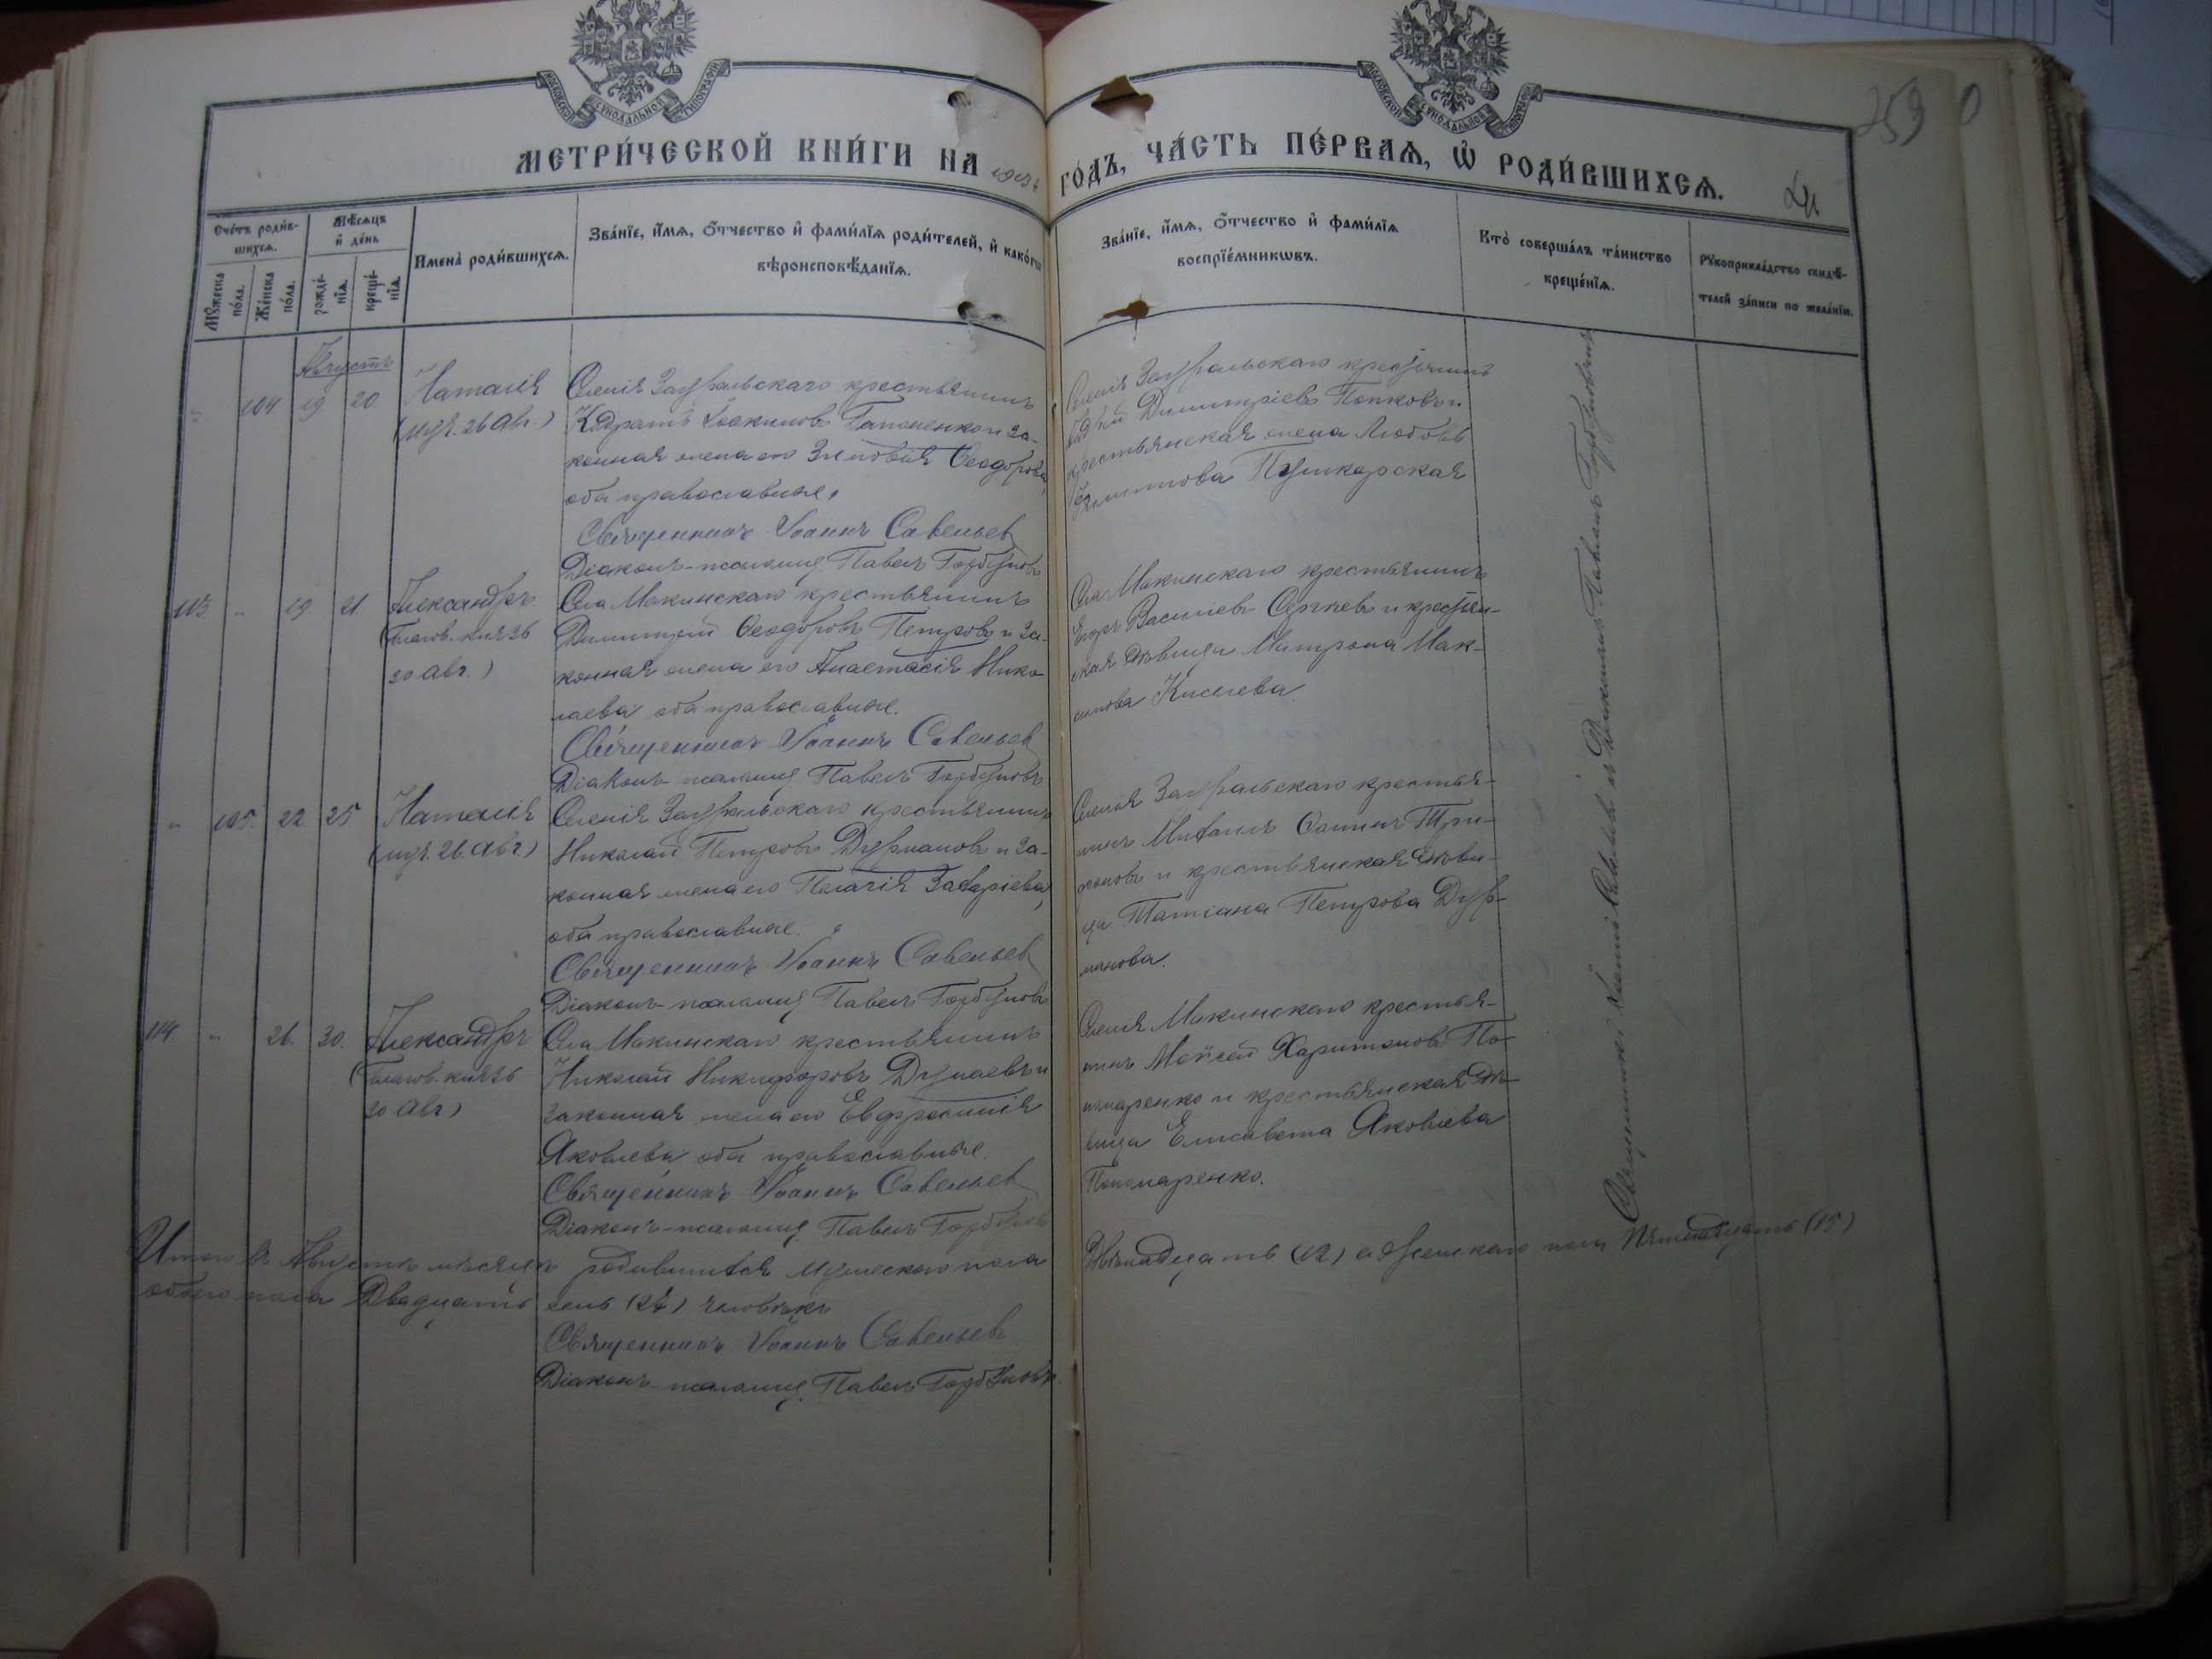 МОСКОВСКОЙ СѴНОДАЛЬНОЙ ТИПОГРАФІИ
МОСКОВСКОЙ СѴНОДАЛЬНОЙ ТИПОГРАФІИ
259
МЕТРИ́ЧЕСКОЙ КНИ́ГИ НА
ГО́ДЪ, ЧА́СТЬ ПЕ́РВАѦ, Ѡ҆ РОДИ́ВШИХСѦ.
Сче́тъ роди́в-
шихсѧ.
Мꙋ́жеска по́ла.
Же́нска по́ла.
Мѣ́сѧцъ
и҆ де́нь
рожде́-
нїѧ.
креще́-
нїѧ.
Имена̀ роди́вшихсѧ.
Зва́нїе, и҆́мѧ, ѻ҆́тчество и҆ фами́лїѧ роди́телей, и҆ како́гѡ
вѣроисповѣ́данїѧ.
Зва́нїе, и҆́мѧ, ѻ҆́тчество и҆ фами́лїѧ
воспрїе́мникѡвъ.
Кто̀ соверша́лъ та́инство
креще́нїѧ.
Рꙋкоприкла́дство свидѣ́-
телей за́писи по жела́нїю.
Августъ
104 19 20 Наталія
(муч. 26 Авг.)
Селенія Зауральскаго крестьянинъ
Іоакимовъ Гапоненко и за-
конная жена его Зиновія Ѳеодорова,
оба православные.
Священникъ Іоаннъ Савельев
Діаконъ-псаломщ. Павелъ Горбуновъ
Селенія Зауральскаго крестьянинъ
Димитріевъ Попковъ и
крестьянская жена Любовь
Пушкарская
113 " 19. 21. Александръ
(Благов. князь
30 Авг.)
Села Макинскаго крестьянинъ
Димитрій Ѳеодоровъ Петровъ и за-
конная жена его Анастасія Нико-
лаева оба православные.
Священникъ Іоаннъ Савельев
Діаконъ-псаломщ. Павелъ Горбуновъ
Села Макинскаго крестьянинъ
Егоръ Васильевъ Сергѣевъ и крестьян-
ская дѣвица Матрона Мак-
симова Киселева.
" 105. 22. 25. Наталія
(муч. 26. Авг.)
Селенія Зауральскаго крестьянинъ
Николай Петровъ Дурмановъ и за-
конная жена его Пелагія Захаріева,
оба православные.
Священникъ Іоаннъ Савельев
Діаконъ-псаломщ. Павелъ Горбуновъ
Селенія Зауральскаго крестья-
нинъ Михаилъ Ѳоминъ Три-
фоновъ и крестьянская дѣви-
ца Татіана Петрова Дур-
манова.
114. " 26. 30. Александръ
(Благов. князь
30 Авг.)
Села Макинскаго крестьянинъ
Николай Никифоровъ Дунаевъ и
законная жена его Евфросинія
Яковлева, оба православные.
Священникъ Іоаннъ Савельев
Діаконъ-псаломщ. Павелъ Горбуновъ
Селенія Макинскаго крестья-
нинъ Моѵсей Харитоновъ По-
номаренко и крестьянская дѣ-
вица Елисавета Яковлева
Пономаренко.
Священникъ Іоаннъ Савельевъ съ Діакономъ Павломъ Горбуновымъ
Итого въ Августѣ мѣсяцѣ родившихся мужескаго пола Двѣнадцать (12) а женскаго пола Пятнадцать (15)
обоего пола Двадцать семь (27) человѣкъ
Священникъ Іоаннъ Савельевъ
Діаконъ-псаломщ. Павелъ Горбуновъ.